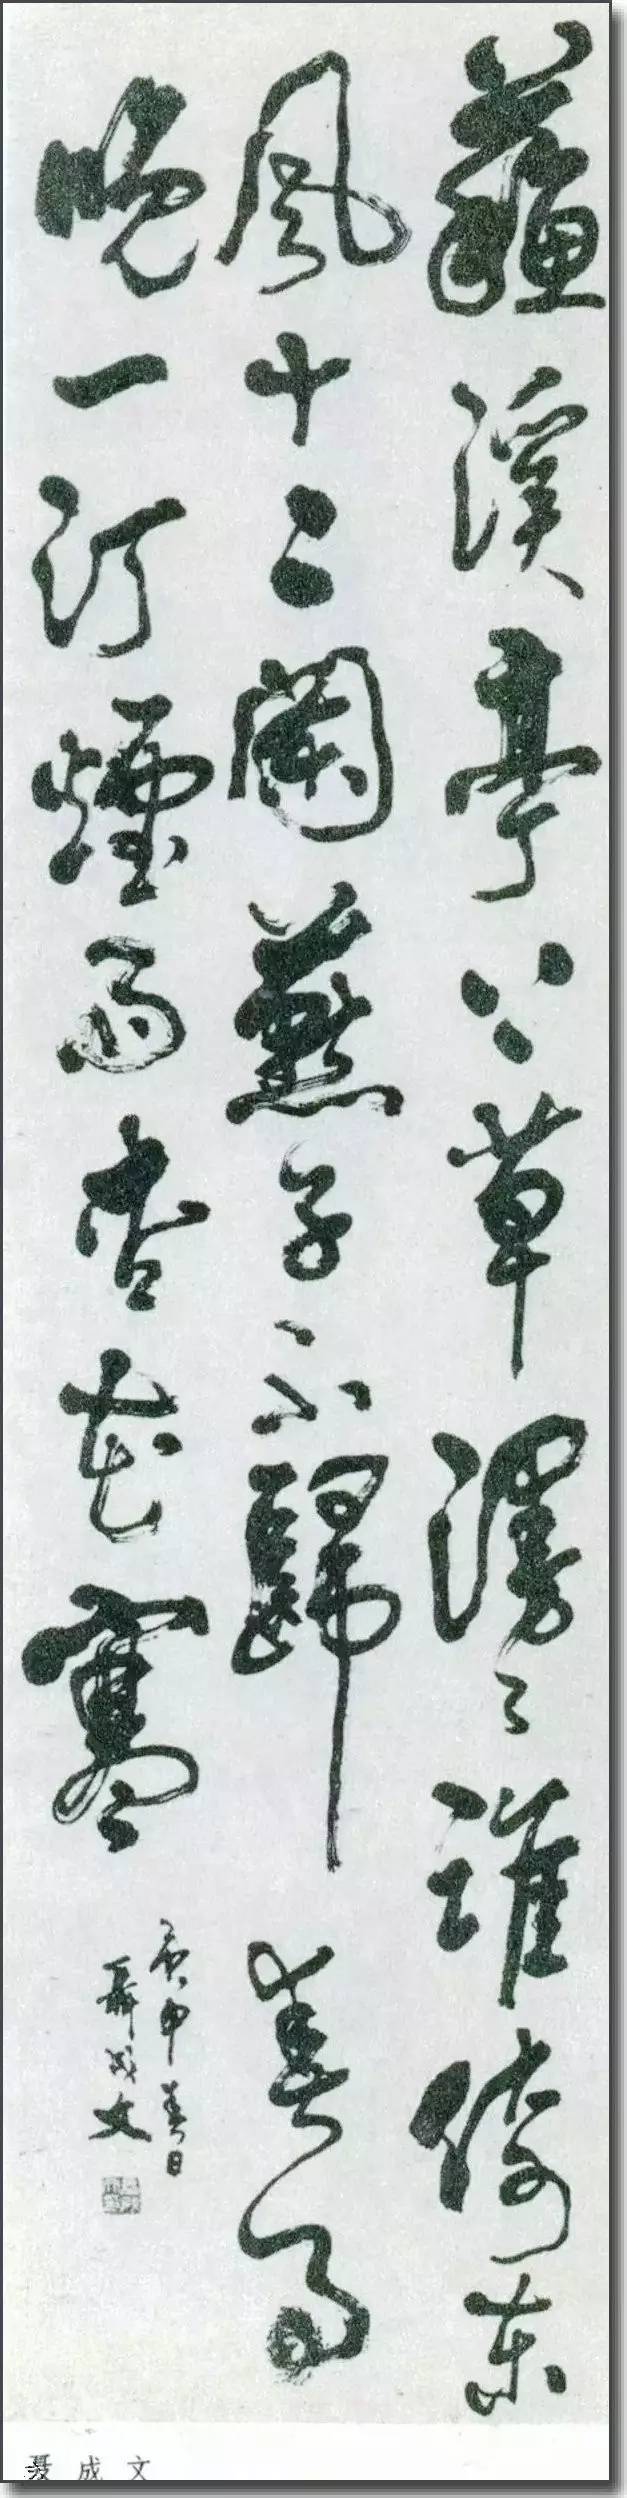 蘇溪亭上草漫々誰倚東
風十二闌燕子不歸春事
晚一汀煙雨杏花寒
庚申春日
聶成文
聂成文